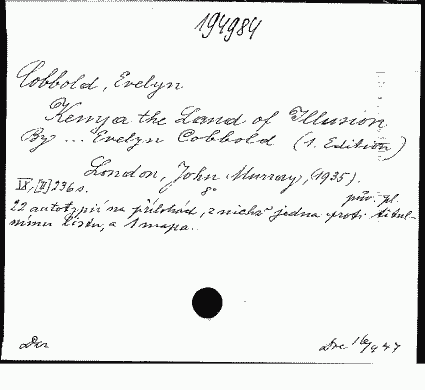 194984
Cobbold, Evelyn
Kenya the Land of Illusion
By ... Evelyn Cobbold (1. Edition)
London, John Murray, (1935).
IX, [II] 236 s. 8° pův. pl.
22 autotypií na přílohách, z nichž jedna proti titul-
nímu listu, a 1 mapa.
Dar